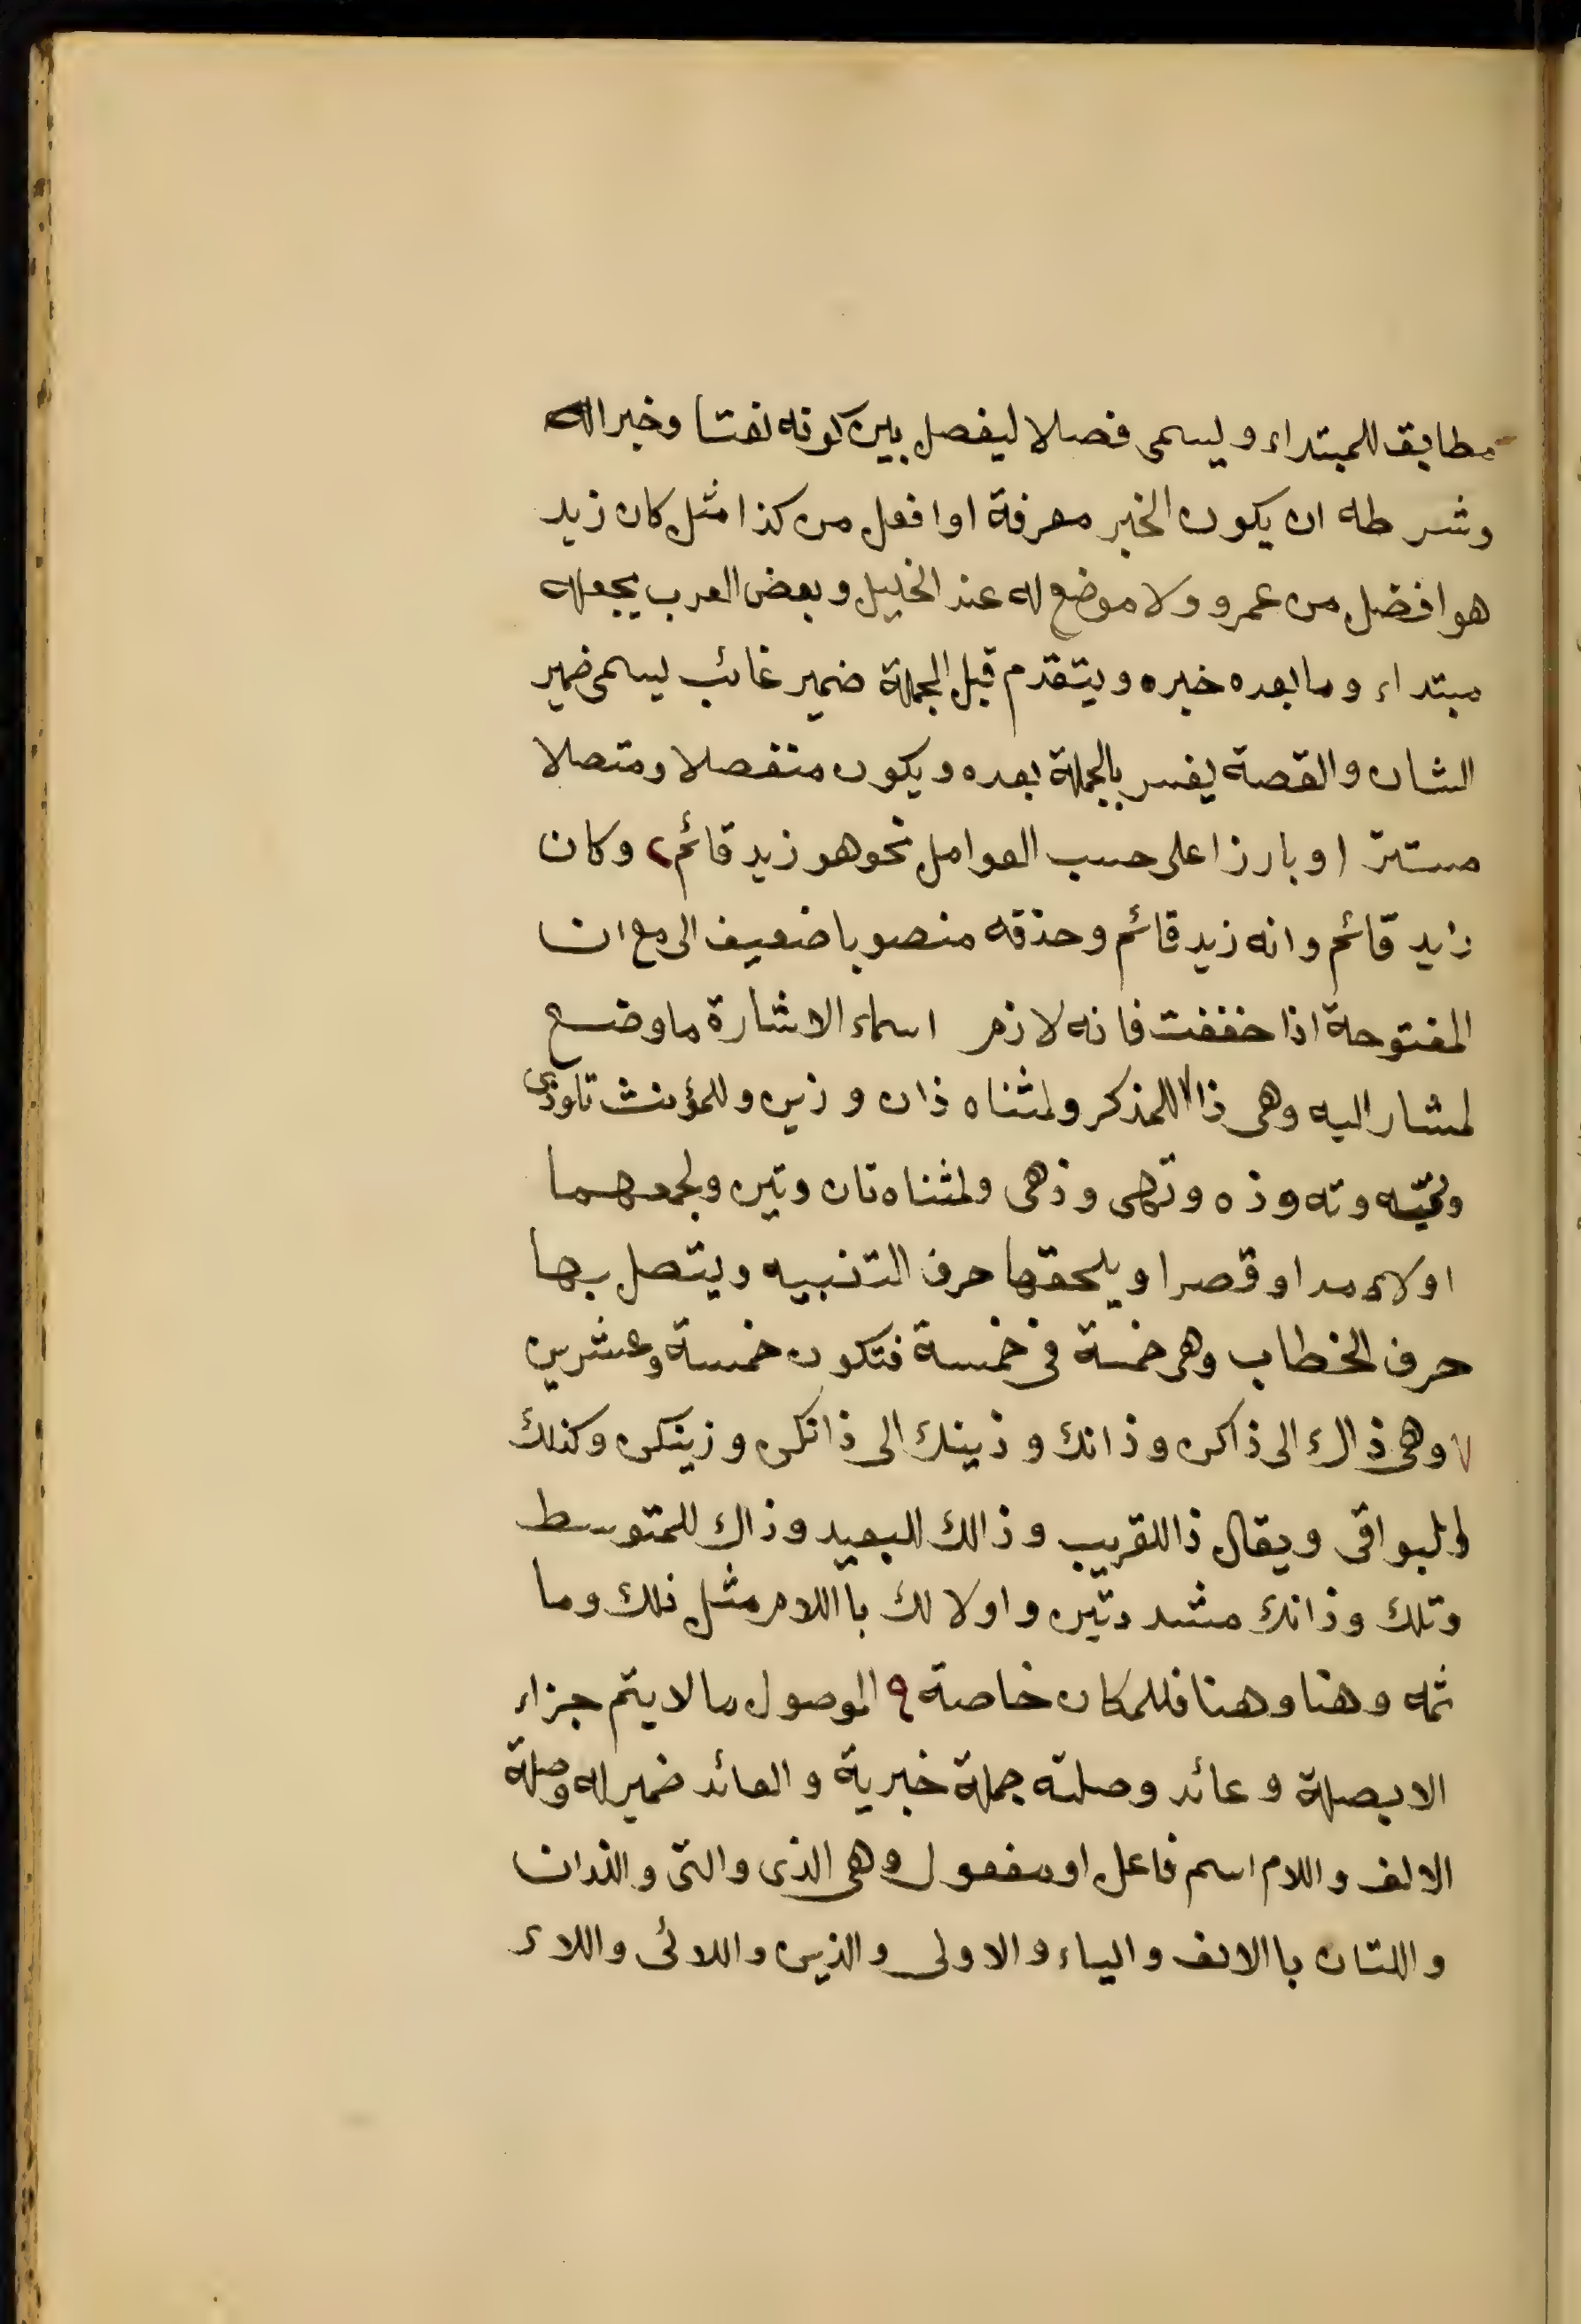 مطابق للمبتداء وليسمى فصلا ليفصل بين كونه نعتا وخبراله
وشرطه ان يكون الخبر معرفة اوافعل من كذا مثل كان زيد
هوافضل من عمرو ولا موضع له عند الخليل وبعض العرب يجعله
مبتداء وما بعده خبره ويتقدم قبل الجملة ضمير غائب يسمى ضمير
الشان والقصة يفسر بالجملة بعده ويكون منفصلا ومتصلا
مستترا وبارزا على حسب العوامل نحو هو زيد قائم وكان
زيد قائم وانه زيد قائم وحذفه منصوبا ضعيف الى مع ان
المفتوحة اذا خففت فانه لازم اسماء الاشارة ما وضع
لمشار اليه وهى ذا للمذكر ولمثناه ذان وزين وللمؤنث تا وذى
وته وذه وتهى وذهى ولمثناه تان وتين ولجمعهما
اولاء مدا وقصرا ويلحقها حرف التنبيه ويتصل بها
حرف الخطاب وهى خمسة فى خمسة فتكون خمسة وعشرين
وهى ذاك الى ذاكن وذانك وذينك الى ذانكن وزينكن وكذلك
البواقى ويقال ذا للقريب وذالك للبعيد وذاك للمتوسط
وتلك وذانك مشددتين واولالك بااللام مثل ذلك وما
ثمه وهنا وهنا فللمكان خاصة الموصول ما لا يتم جزاء
الا بصلة وعائد وصلته جملة خبرية والعائد ضمير له وصلة
الالف واللام اسم فاعل اومفعول وهى الذى والتى والذان
واللتان باالالف والياء والاولى والذين واللائى واللاء